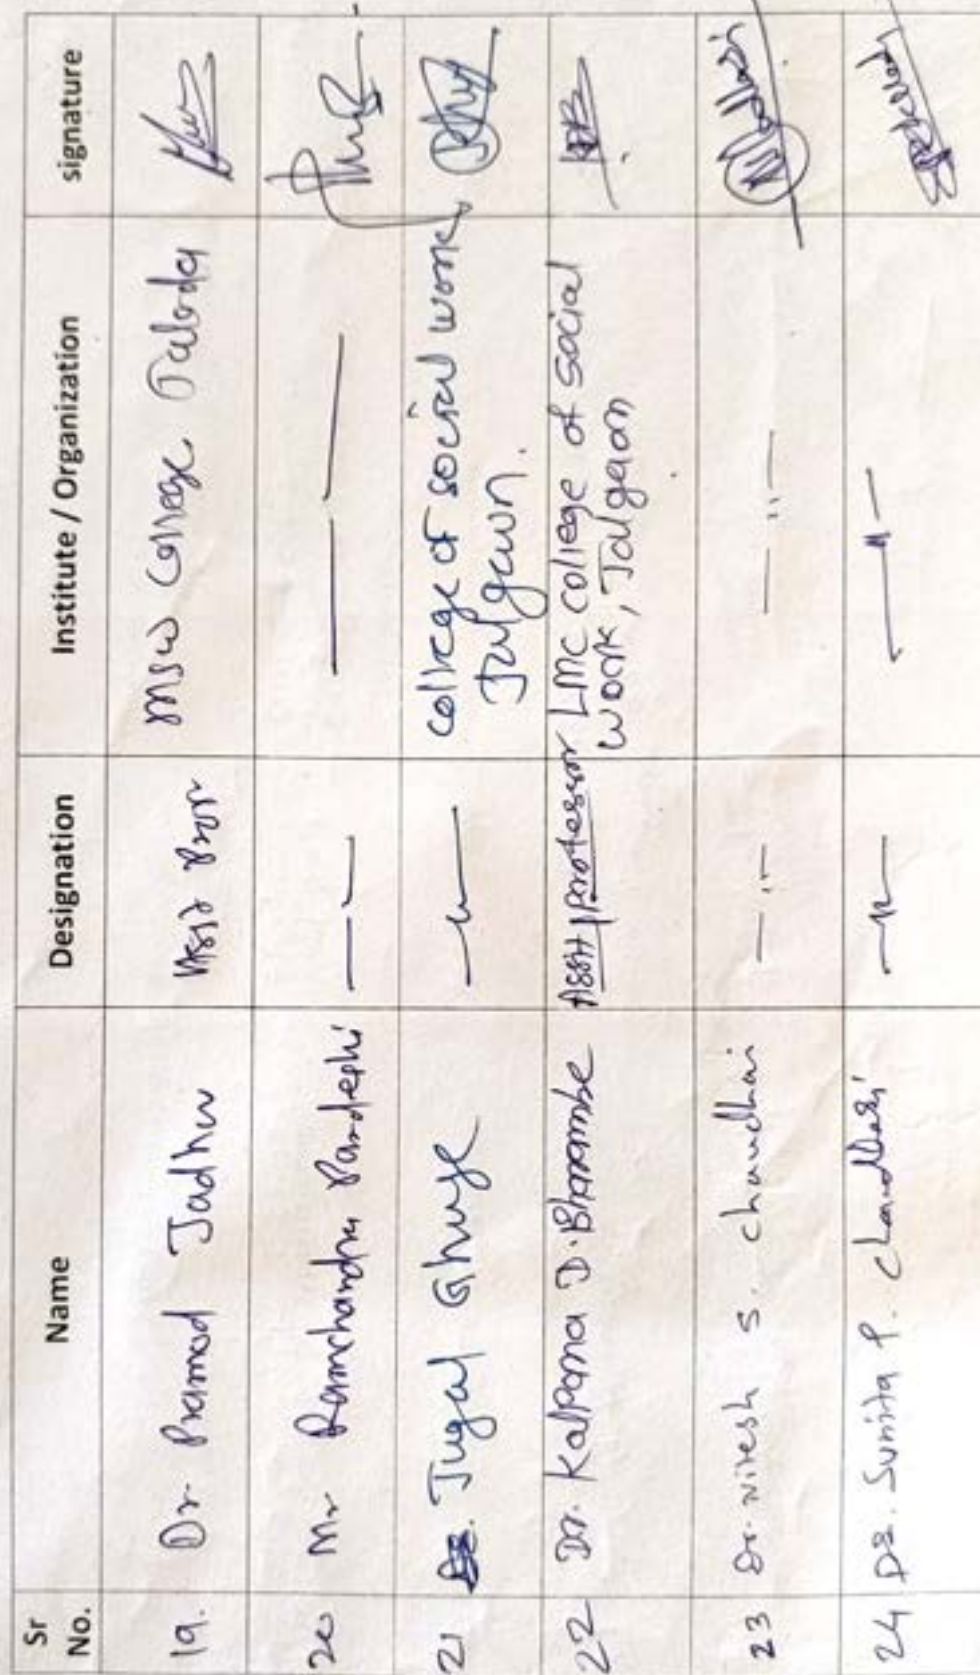 Sr No. Name Designation Institute / Organization signature
19. Dr. Pramod Jadhav Asst Prof MSW College Taloda
20 Mr Ramchandra Pardeshi — — — —
21 Dr. Jugal Ghuge — " — college of social work,
Jalgaon.
22 Dr. Kalpana D. Bharambe Asstt professor LMC college of social
work, Jalgaon
23 Dr. Nilesh S. chaudhari — " — — " —
24 Dr. Sunita P. chaudhari — " — — " —